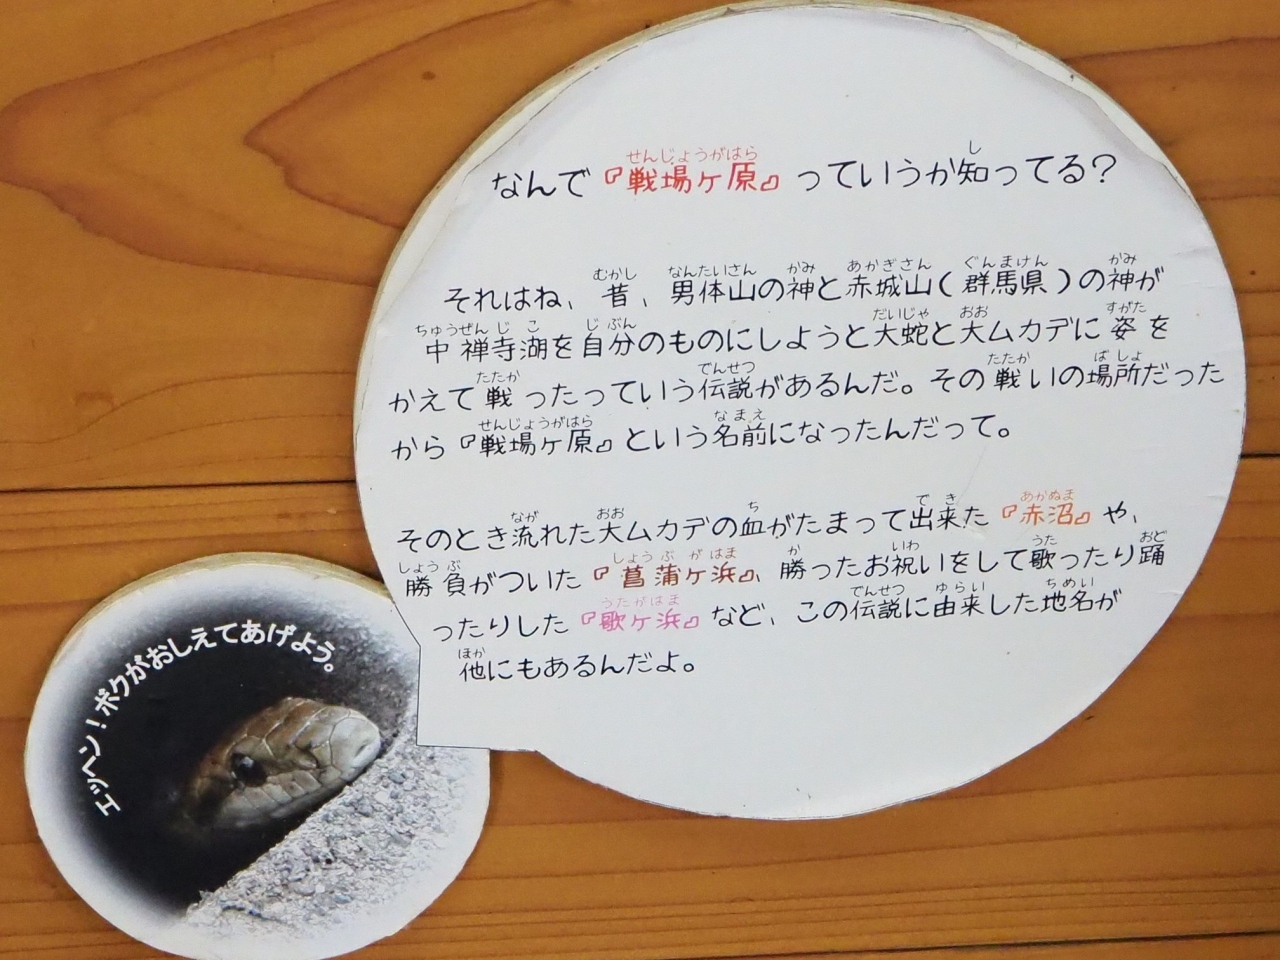 なんで『戦場ヶ原』っていうか知ってる?
それはね、昔、男体山の神と赤城山(群馬県)の神が
中禅寺湖を自分のものにしようと大蛇と大ムカデに姿を
かえて戦ったっていう伝説があるんだ。その戦いの場所だった
から『戦場ヶ原』という名前になったんだって。
そのとき流れた大ムカデの血がたまって出来た『赤沼』や、
勝負がついた『菖蒲ヶ浜』、勝ったお祝いをして歌ったり踊
ったりした『歌ヶ浜』など、この伝説に由来した地名が
他にもあるんだよ。
エッヘン!ボクがおしえてあげよう。